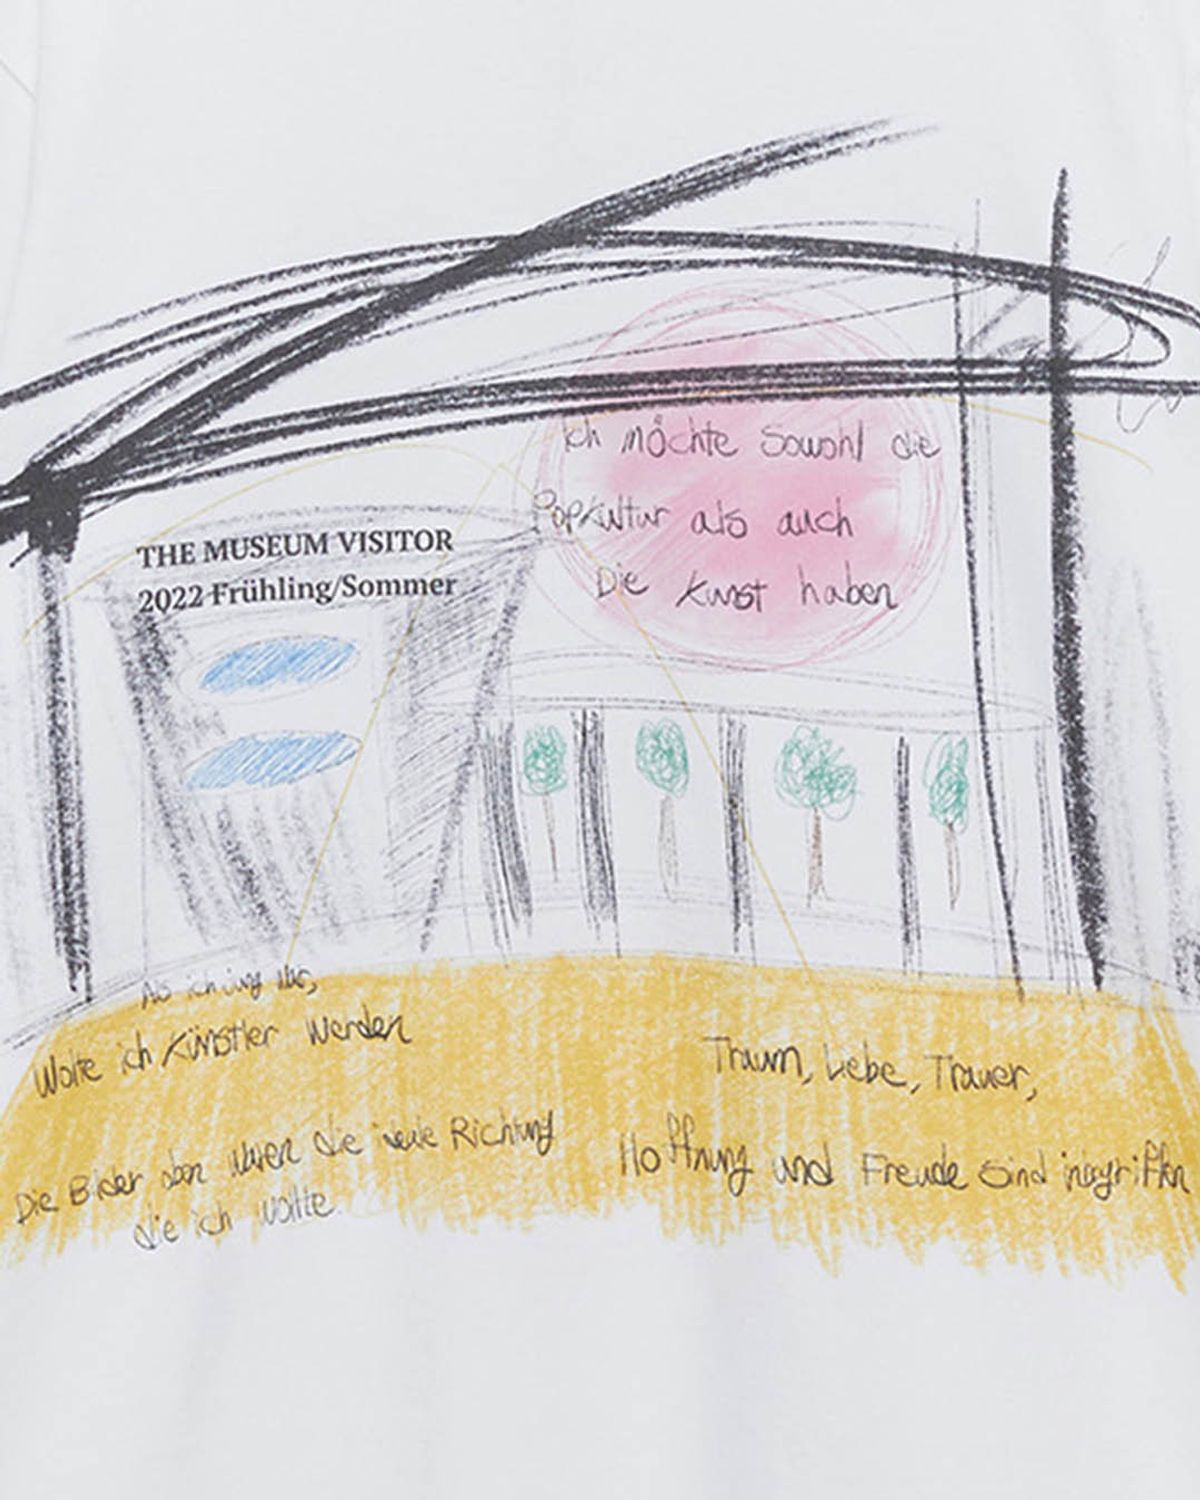 THE MUSEUM VISITOR
2022 Frühling/Sommer
ich möchte sowohl die
Popkultur als auch
Die Kunst haben
Als ich
Wolte ich Künstler werden
Die Bilder oben waren die neue Richtung
die ich wollte.
Traum, Liebe, Trauer,
Hoffnung und Freude sind